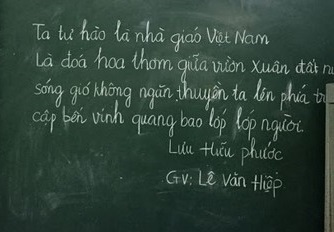 Ta tự hào là nhà giáo Việt Nam
Là đoá hoa thơm giữa vườn xuân đất
sóng gió không ngăn thuyền ta lên phía
cập bến vinh quang bao lớp lớp người.
Lưu Hữu Phước
GV: Lê Văn Hiệp